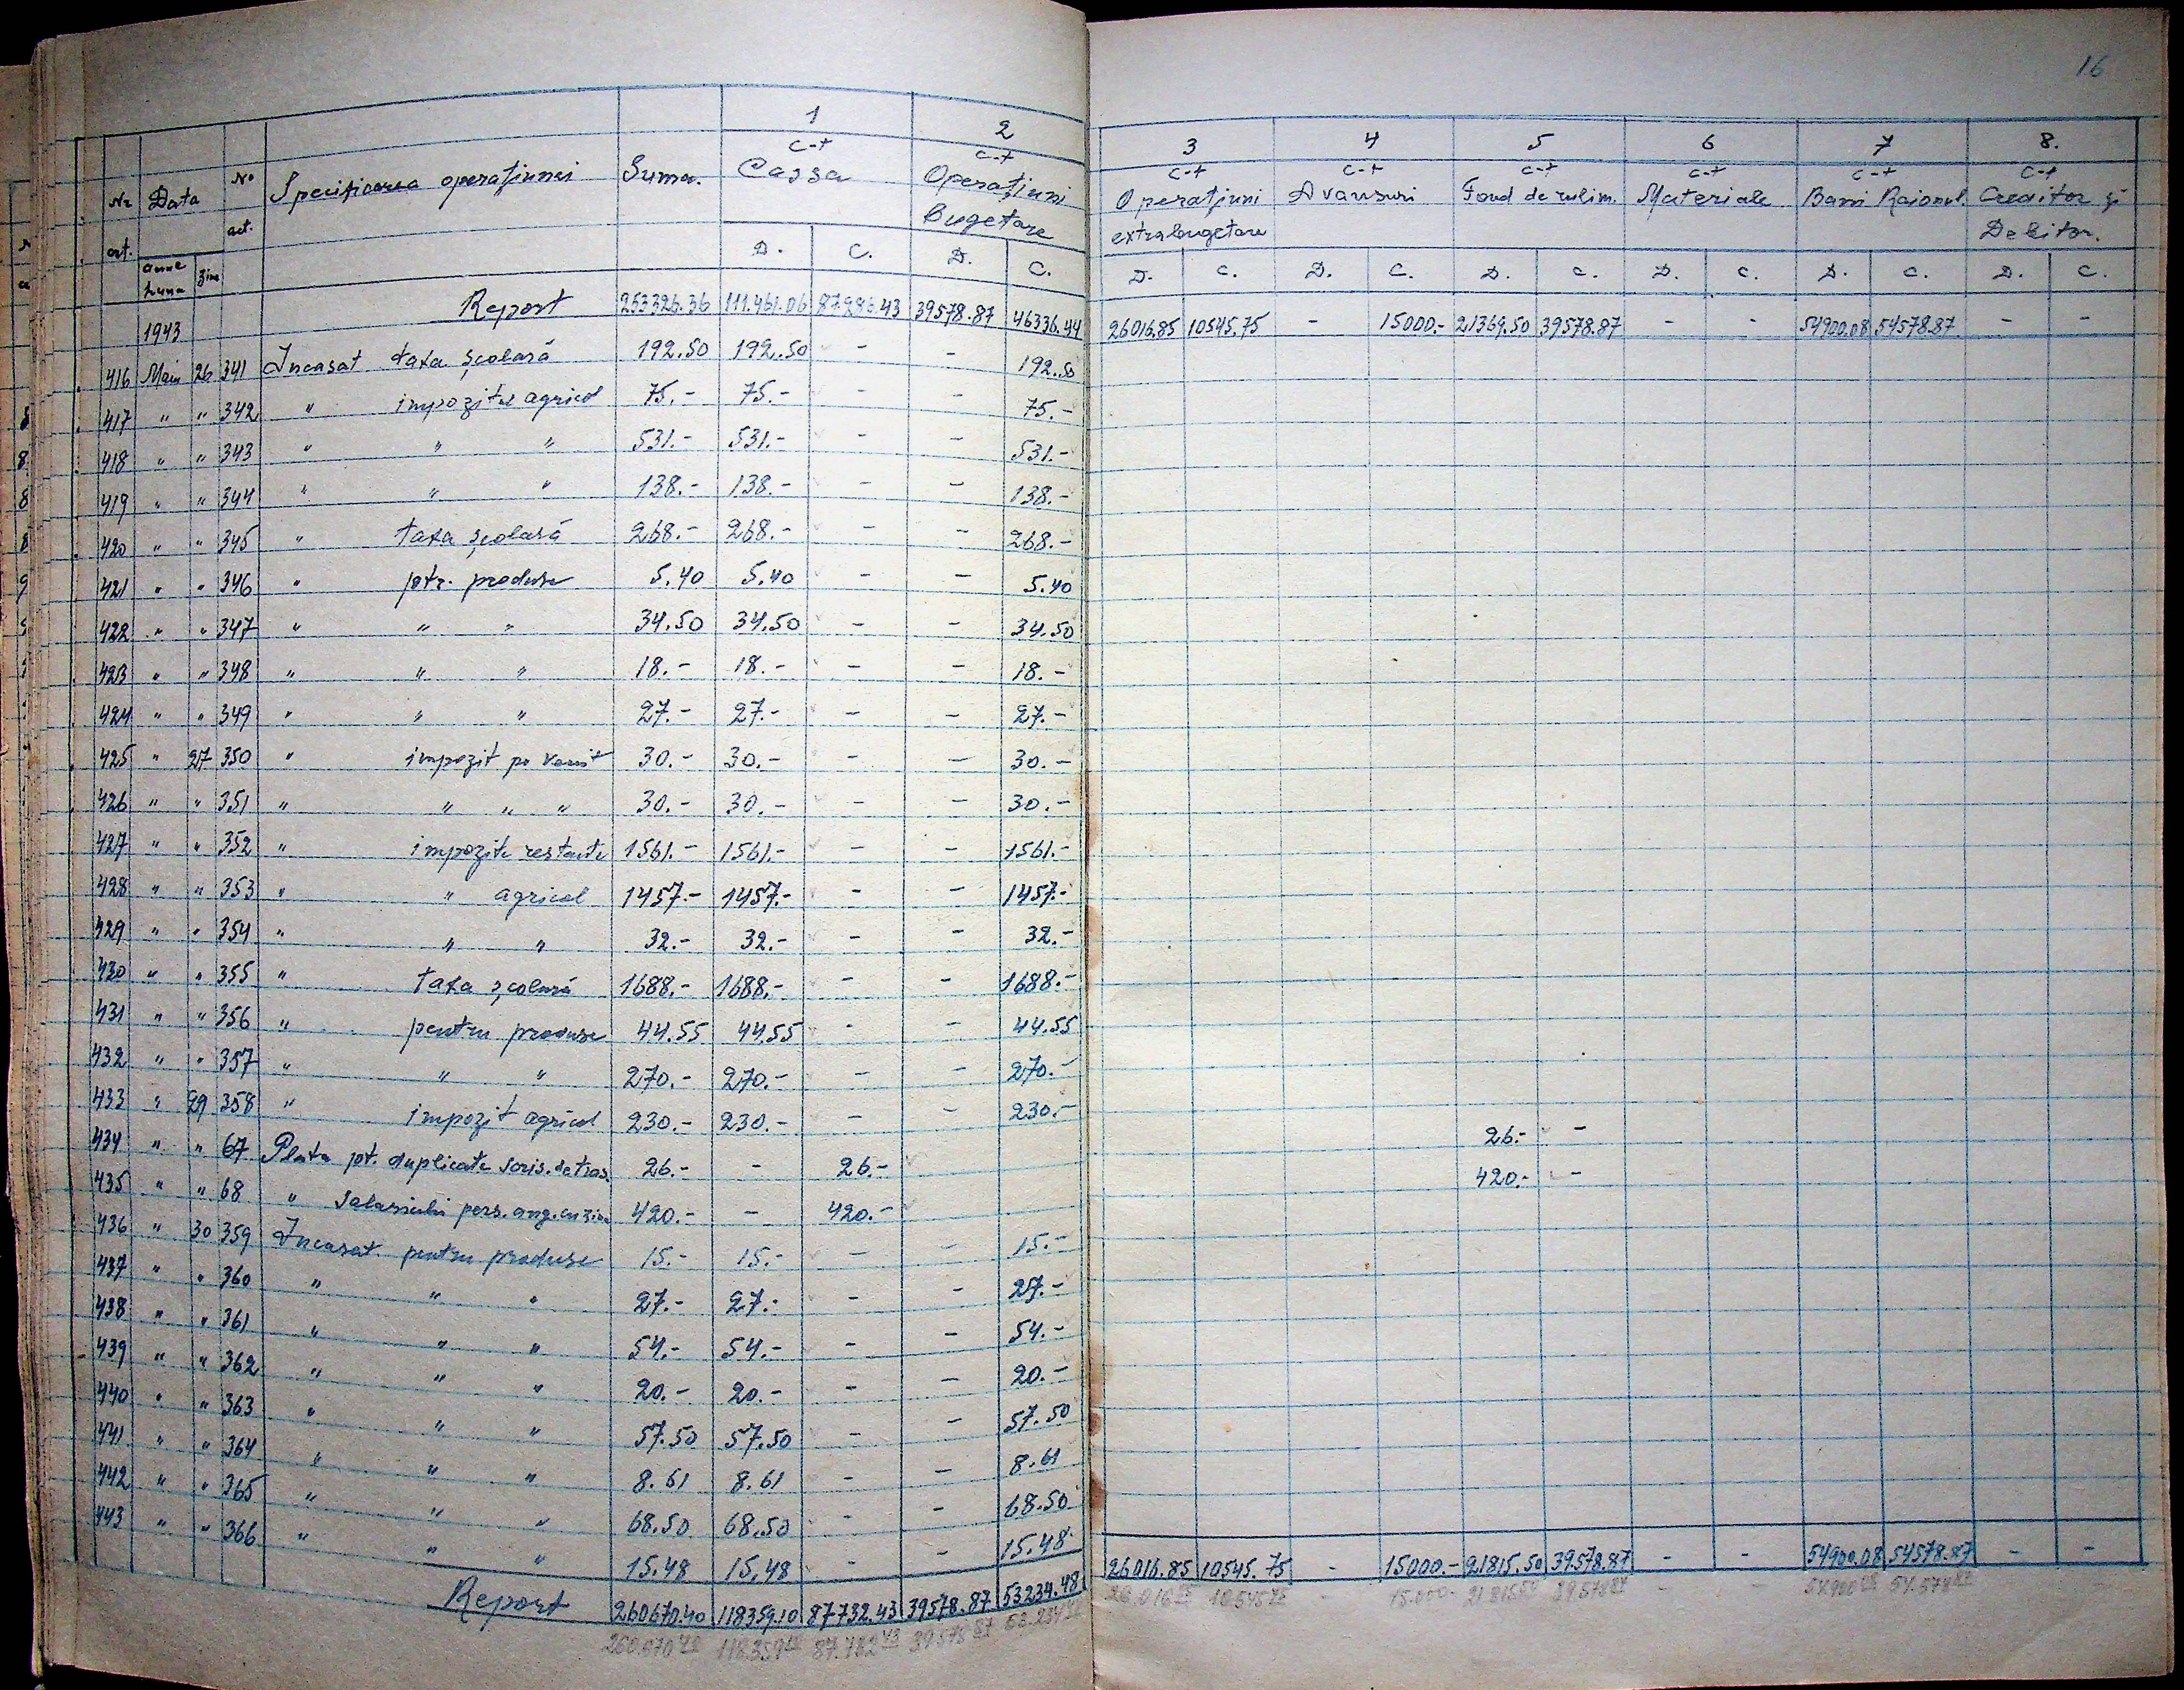 16
1 2 3 4 5 6 7 8.
Nr. art. Data No act. Specificarea operaţiunei Suma. c-t Cassa c-t Operaţiuni bugetare c-t Operaţiuni extrabugetare c-t Avansuri c-t Fond de rulm. c-t Materiale c-t Bani Raional. c-t Creditor şi Debitor.
anul luna ziua D. C. D. C. D. C. D. C. D. C. D. C. D. C. D. C.
Report 253326.36 111.461.06 87286.43 39578.87 46336.44 26016.85 10545.75 - 15000.- 21369.50 39578.87 - - 54900.08 54578.87 - -
1943
416 Main 26 341 Incasat taxa şcolară 192.50 192.50 - - 192.50
417 " " 342 " impozitul agricol 75.- 75.- - - 75.-
418 " " 343 " " " 531.- 531.- - - 531.-
419 " " 344 " " " 138.- 138.- - - 138.-
420 " " 345 " taxa şcolară 268.- 268.- - - 268.-
421 " " 346 " ptr. produse 5.40 5.40 - - 5.40
422 " " 347 " " " 34.50 34.50 - - 34.50
423 " " 348 " " " 18.- 18.- - - 18.-
424 " " 349 " " " 27.- 27.- - - 27.-
425 " 27 350 " impozit pe venit 30.- 30.- - - 30.-
426 " " 351 " " " " 30.- 30.- - - 30.-
427 " " 352 " impozite restante 1561.- 1561.- - - 1561.-
428 " " 353 " " agricol 1457.- 1457.- - - 1457.-
429 " " 354 " " " 32.- 32.- - - 32.-
430 " " 355 " taxa şcolară 1688.- 1688.- - - 1688.-
431 " " 356 " pentru produse 44.55 44.55 - - 44.55
432 " " 357 " " " 270.- 270.- - - 270.-
433 " 29 358 " impozit agricol 230.- 230.- - - 230.-
434 " " 67 Plata pt. duplicate scris. de tras. 26.- - 26.- 26.- -
435 " " 68 " Salariului pers. ang. cu ziua 420.- - 420.- 420.- -
436 " 30 359 Incasat pentru produse 15.- 15.- - - 15.-
437 " " 360 " " " 27.- 27.- - - 27.-
438 " " 361 " " " 54.- 54.- - - 54.-
439 " " 362 " " " 20.- 20.- - - 20.-
440 " " 363 " " " 57.50 57.50 - - 57.50
441 " " 364 " " " 8.61 8.61 - - 8.61
442 " " 365 " " " 68.50 68.50 - - 68.50
443 " " 366 " " " 15.48 15.48 - - 15.48
Report 260670.40 118359.10 87732.43 39578.87 53234.48 26016.85 10545.75 - 15000.- 21815.50 39578.87 - - 54900.08 54578.87 - -
260.670 40 118.359 10 87.732 43 39578 87 53.234 48 26.016 85 10.545 75 - 15.000 - 21.815 50 39.578 87 - 54.900 08 54.578 87